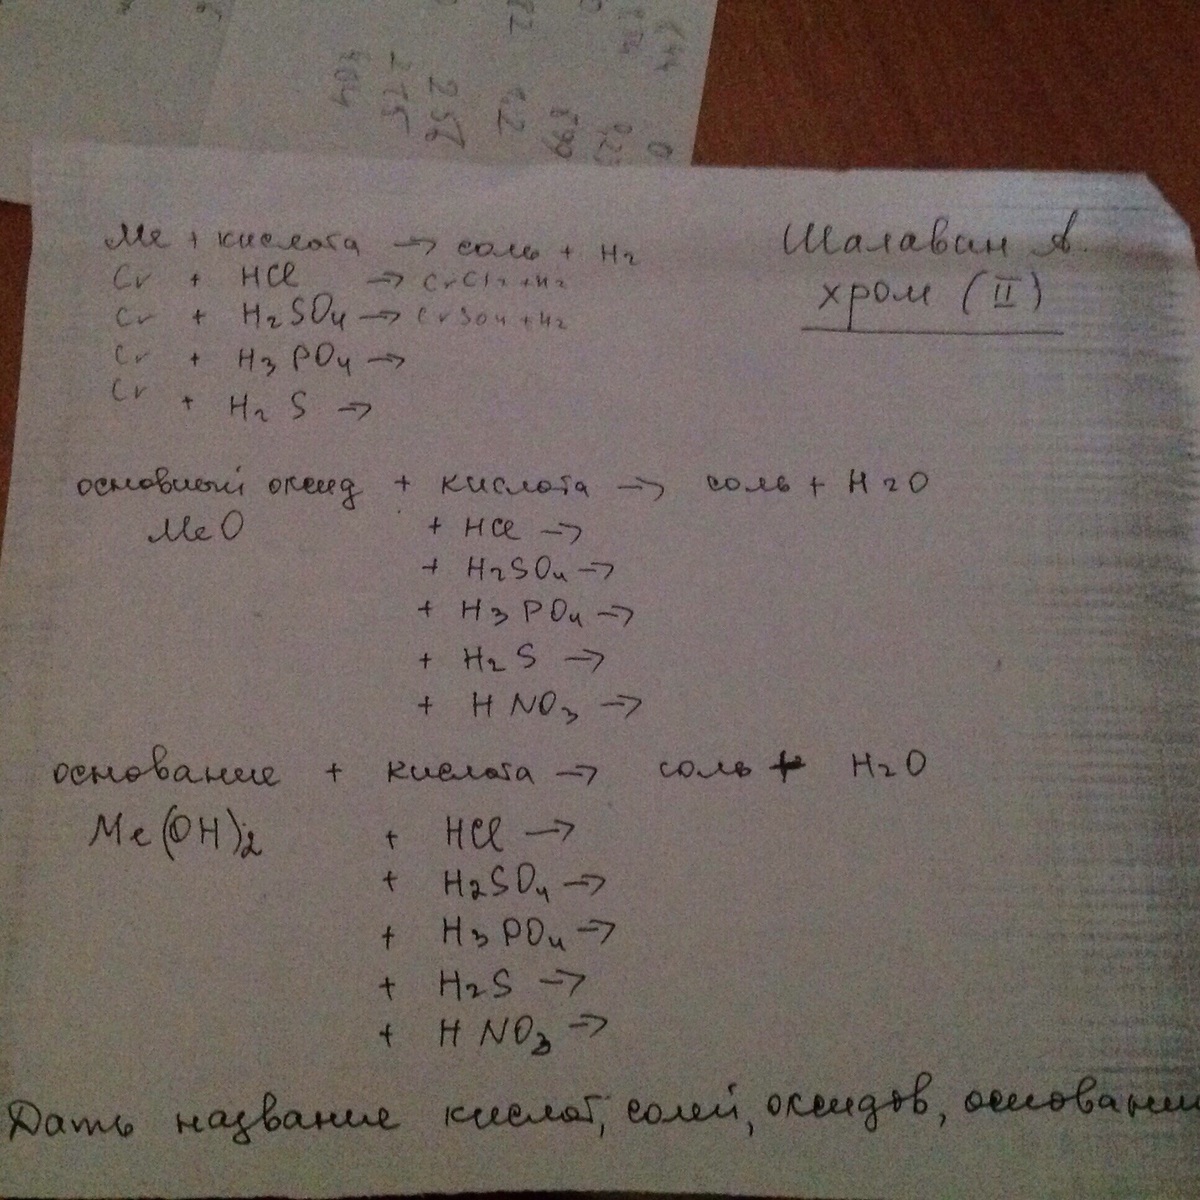 Ме + кислота → соль + H2
Шалаван А.
Cr + HCl → CrCl2 + H2
хром (II)
Cr + H2SO4 → CrSO4 + H2
Cr + H3PO4 →
Cr + H2S →
основный оксид + кислота → соль + H2O
MeO + HCl →
+ H2SO4 →
+ H3PO4 →
+ H2S →
+ HNO3 →
основание + кислота → соль + H2O
Me(OH)2 + HCl →
+ H2SO4 →
+ H3PO4 →
+ H2S →
+ HNO3 →
Дать название кислот, солей, оксидов, основани